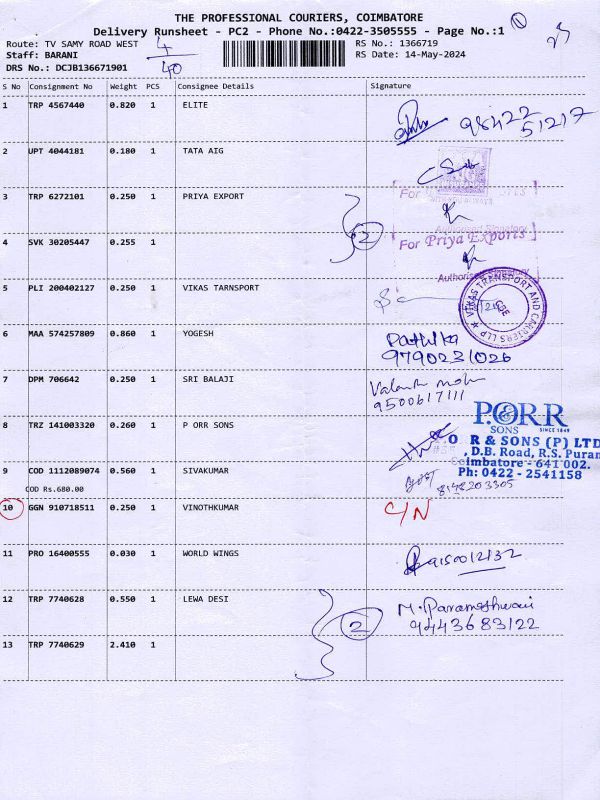 THE PROFESSIONAL COURIERS, COIMBATORE
Delivery Runsheet - PC2 - Phone No.:0422-3505555 - Page No.:1
Route: TV SAMY ROAD WEST
RS No.: 1366719
Staff: BARANI
4/40
RS Date: 14-May-2024
DRS No.: DCJB136671901
S No Consignment No Weight PCS Consignee Details Signature
1 TRP 4567440 0.820 1 ELITE 98422 51217
2 UPT 4044181 0.180 1 TATA AIG
3 TRP 6272101 0.250 1 PRIYA EXPORT
Authorised Signatory
2
For Priya Exports
4 SVK 30205447 0.255 1
Authorised Signatory
5 PLI 200402127 0.250 1 VIKAS TARNSPORT
VIKAS TRANSPORT AND CARRIERS LLP
CBE
6 MAA 574257809 0.860 1 YOGESH
9790231026
7 DPM 706642 0.250 1 SRI BALAJI
9500617111
8 TRZ 141003320 0.260 1 P ORR SONS
P.ORR
SONS SINCE 1849
O R & SONS (P) LTD
, D.B. Road, R.S. Puram
Coimbatore - 641 002.
Ph: 0422 - 2541158
9 COD 1112089074 0.560 1 SIVAKUMAR
8148203305
COD Rs.680.00
10 GGN 910718511 0.250 1 VINOTHKUMAR C/N
11 PRO 16400555 0.030 1 WORLD WINGS 9150012132
12 TRP 7740628 0.550 1 LEWA DESI
M. Parameshwari
2
9443683122
13 TRP 7740629 2.410 1